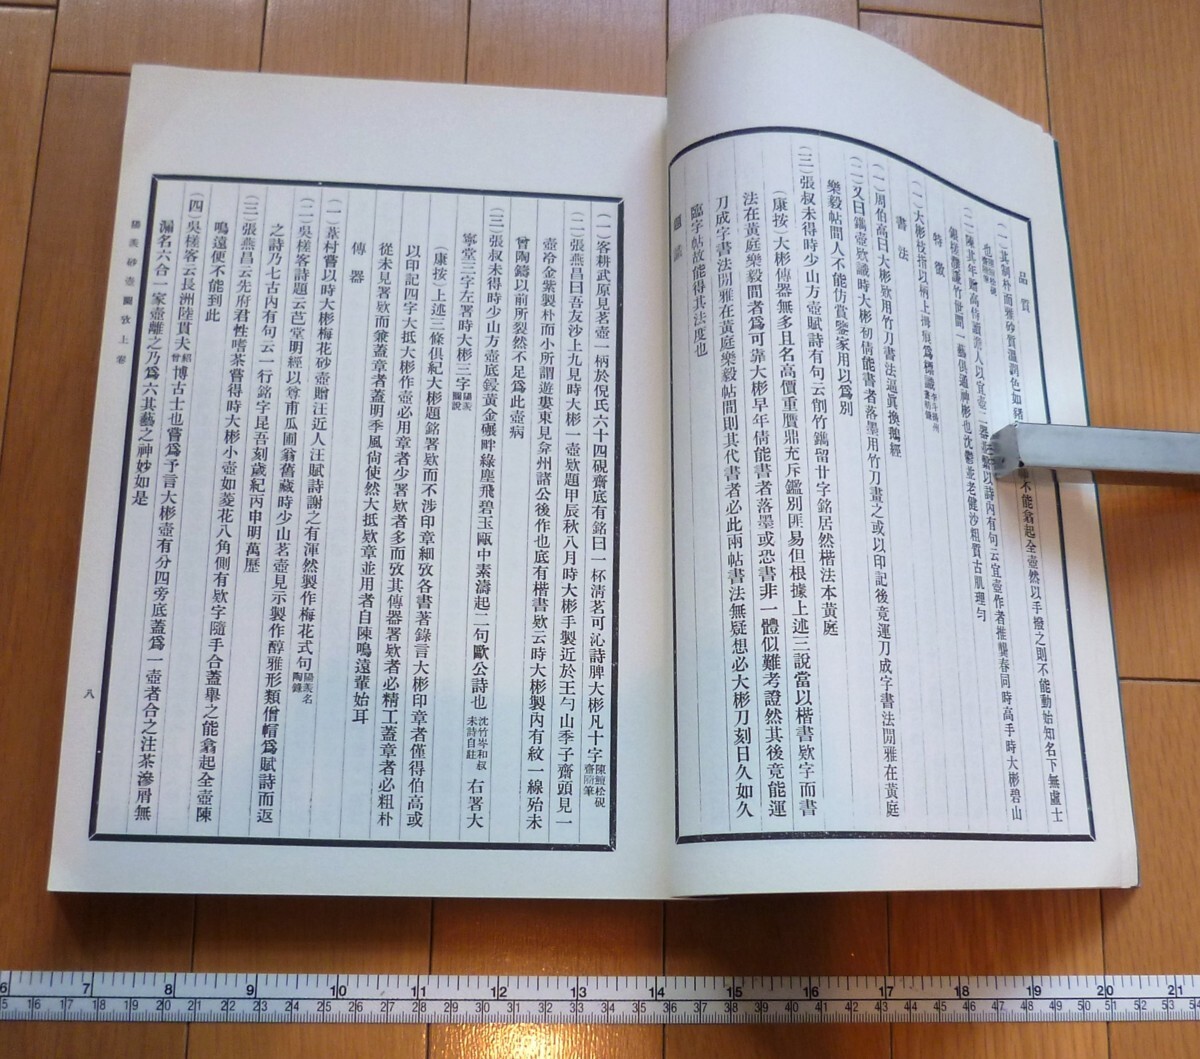 品質
(一)其制朴而雅砂質溫潤色如豬
不能翕起全壺然以手撥之則不能動始知名下無虛士
也
(二)陳其年贈高侍讀澹人以宜壺二器
以詩內有句云宜壺作者推龔春同時高手時大彬碧山
銀槎濮謙竹世間一藝俱通神彬也沈鬱並老健沙粗質古肌理勻
特徵
(一)大彬枝指以柄上拇痕爲標識
書法
(一)周伯高曰大彬欵用竹刀書法逼眞換鵝經
(二)又曰鐫壺欵識時大彬初倩能書者落墨用竹刀畫之或以印記後竟運刀成字書法閒雅在黃庭
樂毅帖間人不能仿賞鑒家用以爲別
(三)張叔未得時少山方壺賦詩有句云削竹鐫留廿字銘居然楷法本黃庭
(康按)大彬傳器無多且名高價重贋鼎充斥鑑別匪易但根據上述三說當以楷書欵字而書
法在黃庭樂毅間者爲可靠大彬早年倩能書者落墨或恐書非一體似難考證然其後竟能運
刀成字書法閒雅在黃庭樂毅帖間則其代書者必此兩帖書法無疑想必大彬刀刻日久如久
臨字帖故能得其法度也
題識
(一)客耕武原見茗壺一柄於倪氏六十四硯齋底有銘曰一杯淸茗可沁詩脾大彬凡十字陳鱣松硯齋隨筆
(二)張燕昌曰吾友沙上九見時大彬一壺欵題甲辰秋八月時大彬手製近於王勺山季子齋頭見一
壺冷金紫製朴而小所謂遊婁東見弇州諸公後作也底有楷書欵云時大彬製內有紋一線殆未
曾陶鑄以前所裂然不足爲此壺病
(三)張叔未得時少山方壺底鋟黃金碾畔綠塵飛碧玉甌中素濤起二句歐公詩也沈竹岑和叔未詩自註右署大
寧堂三字左署時大彬三字陽羨圖說
(康按)上述三條俱紀大彬題銘署欵而不涉印章細攷各書著錄言大彬印章者僅得伯高或
以印記四字大抵大彬作壺必用章者少署欵者多而攷其傳器署欵者必精工蓋章者必粗朴
從未見署欵而兼蓋章者蓋明季風尙使然大抵欵章並用者自陳鳴遠輩始耳
傳器
(一)葑村嘗以時大彬梅花砂壺贈汪近人汪賦詩謝之有渾然製作梅花式句陽羨名陶錄
(二)吳槎客詩題云芑堂明經以尊甫瓜圃翁舊藏時少山茗壺見示製作醇雅形類僧帽爲賦詩而返
之詩乃七古內有句云一行銘字昆吾刻歲紀丙申明萬歷
(三)張燕昌云先府君性嗜茶嘗得時大彬小壺如菱花八角側有欵字隨手合蓋舉之能翕起全壺陳
鳴遠便不能到此
(四)吳槎客云長洲陸貫夫紹曾博古士也嘗爲予言大彬壺有分四旁底蓋爲一壺者合之注茶滲屑無
漏名六合一家壺離之乃爲六其藝之神妙如是
陽羨砂壺圖攷上卷
八
6 7 8 9 10 11 12 13 14 15 16 17 18 19 20 21